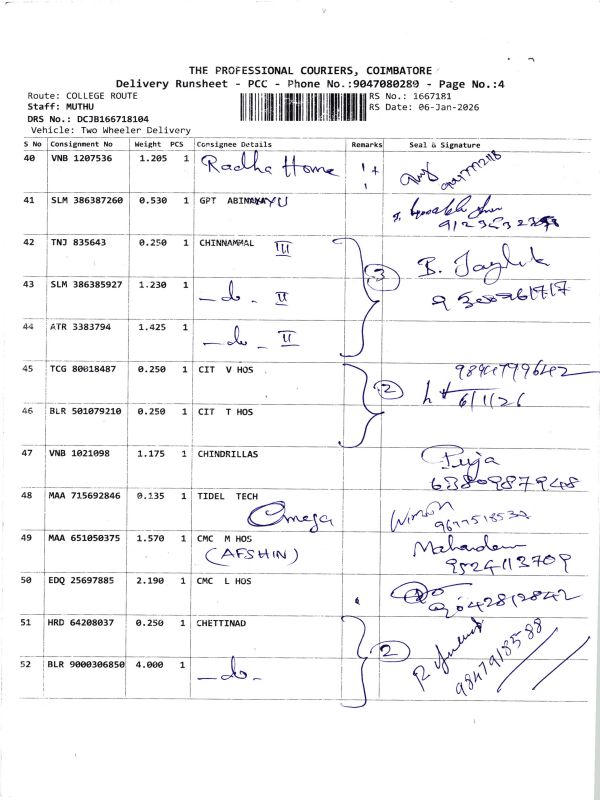 THE PROFESSIONAL COURIERS, COIMBATORE
Delivery Runsheet - PCC - Phone No.:9047080289 - Page No.:4
Route: COLLEGE ROUTE RS No.: 1667181
Staff: MUTHU RS Date: 06-Jan-2026
DRS No.: DCJB166718104
Vehicle: Two Wheeler Delivery
S No Consignment No Weight PCS Consignee Details Remarks Seal & Signature
40 VNB 1207536 1.205 1 Radha Home
41 SLM 386387260 0.530 1 GPT
42 TNJ 835643 0.250 1 CHINNAMMAL III 3
43 SLM 386385927 1.230 1 -do- II
44 ATR 3383794 1.425 1 -do- II
45 TCG 80018487 0.250 1 CIT V HOS 2
46 BLR 501079210 0.250 1 CIT T HOS 6/1/26
47 VNB 1021098 1.175 1 CHINDRILLAS
48 MAA 715692846 0.135 1 TIDEL TECH
Omega
49 MAA 651050375 1.570 1 CMC M HOS
(AFSHIN) 9524113709
50 EDQ 25697885 2.190 1 CMC L HOS
51 HRD 64208037 0.250 1 CHETTINAD 2
52 BLR 9000306850 4.000 1 -do- 9847918588